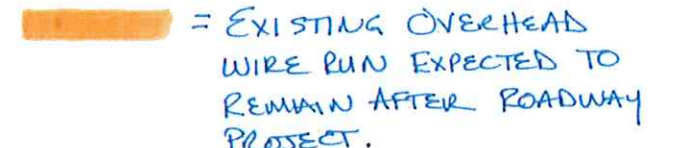 = EXISTING OVERHEAD
WIRE RUN EXPECTED TO
REMAIN AFTER ROADWAY
PROJECT.